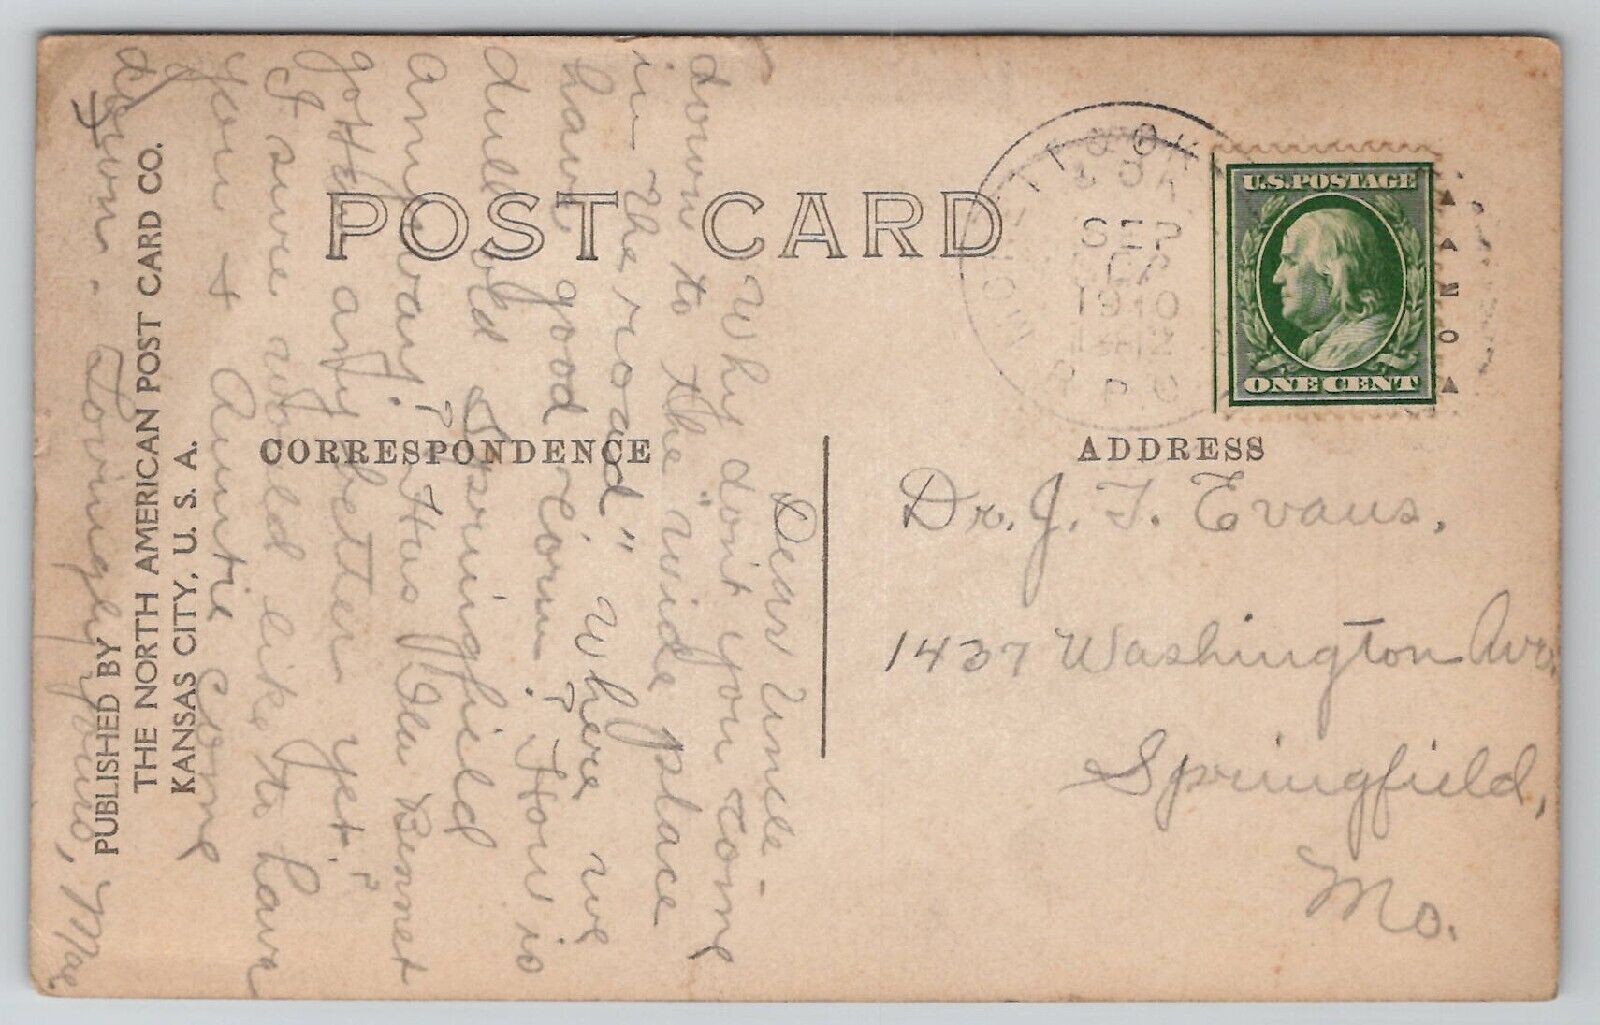 POST CARD
CORRESPONDENCE
ADDRESS
U.S.POSTAGE
ONE CENT
SEP
1910
R.P.O
Dr. J. T. Evans.
1437 Washington Ave.
Springfield,
Mo.
Dear Uncle-
Why don't you come
down to the "wide place
in the road" where we
have good corn? How is
dull old Springfield
anyway? Has Ola Bennet
gotten any better yet?
I sure would like to have
you + Auntie come
down - Lovingly yours, Mae
PUBLISHED BY
THE NORTH AMERICAN POST CARD CO.
KANSAS CITY, U. S. A.